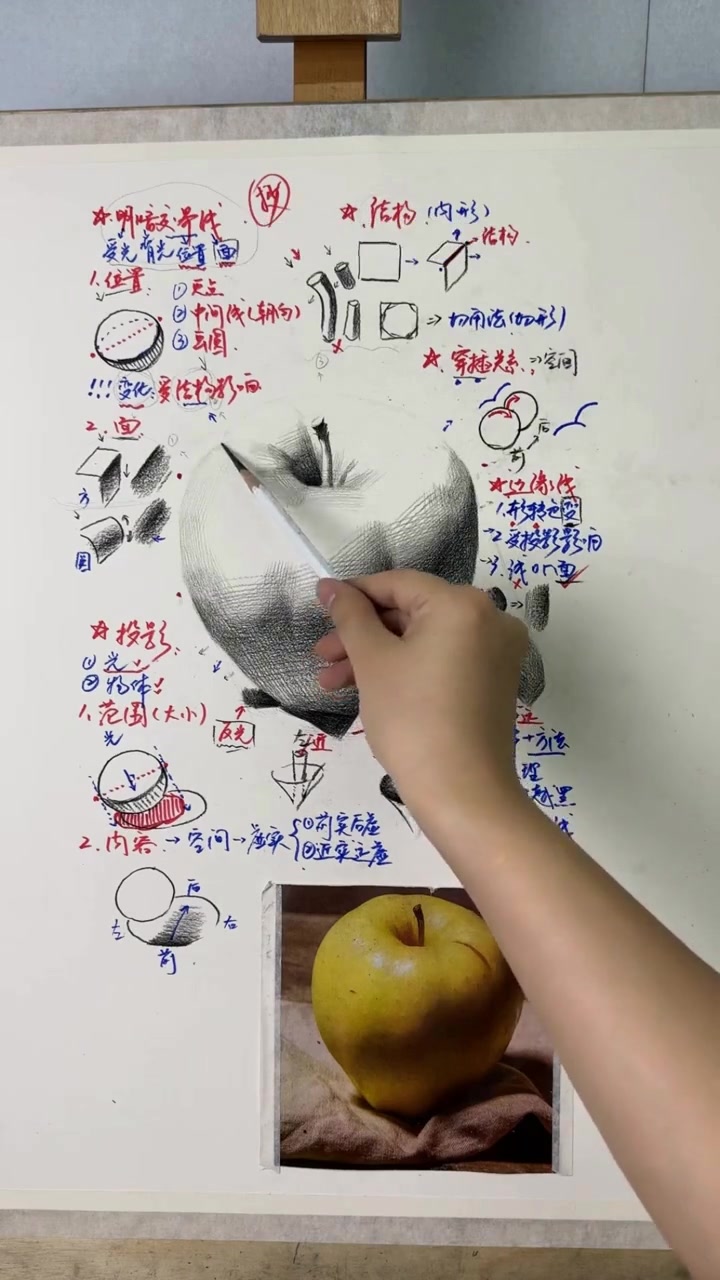 ☆.明暗交界线
受光 背光 位置 面
1.位置
① 更点
② 中间线(朝向)
③ 云圆
!!! 变化:受结构影响
2. 面
方
圆
☆投影
① 光
② 物体
1.范围(大小)
光
反光
2.内容→空间→虚实
①前实后虚
②近实远虚
后
左
右
前
☆.结构(内形)
结构
⇒切角法(外形)
☆.穿插关系⇒空间
后
前
☆边缘线
1.形转色变
2.受投影影响
3.线or面
左近
+方法
理
越黑
线